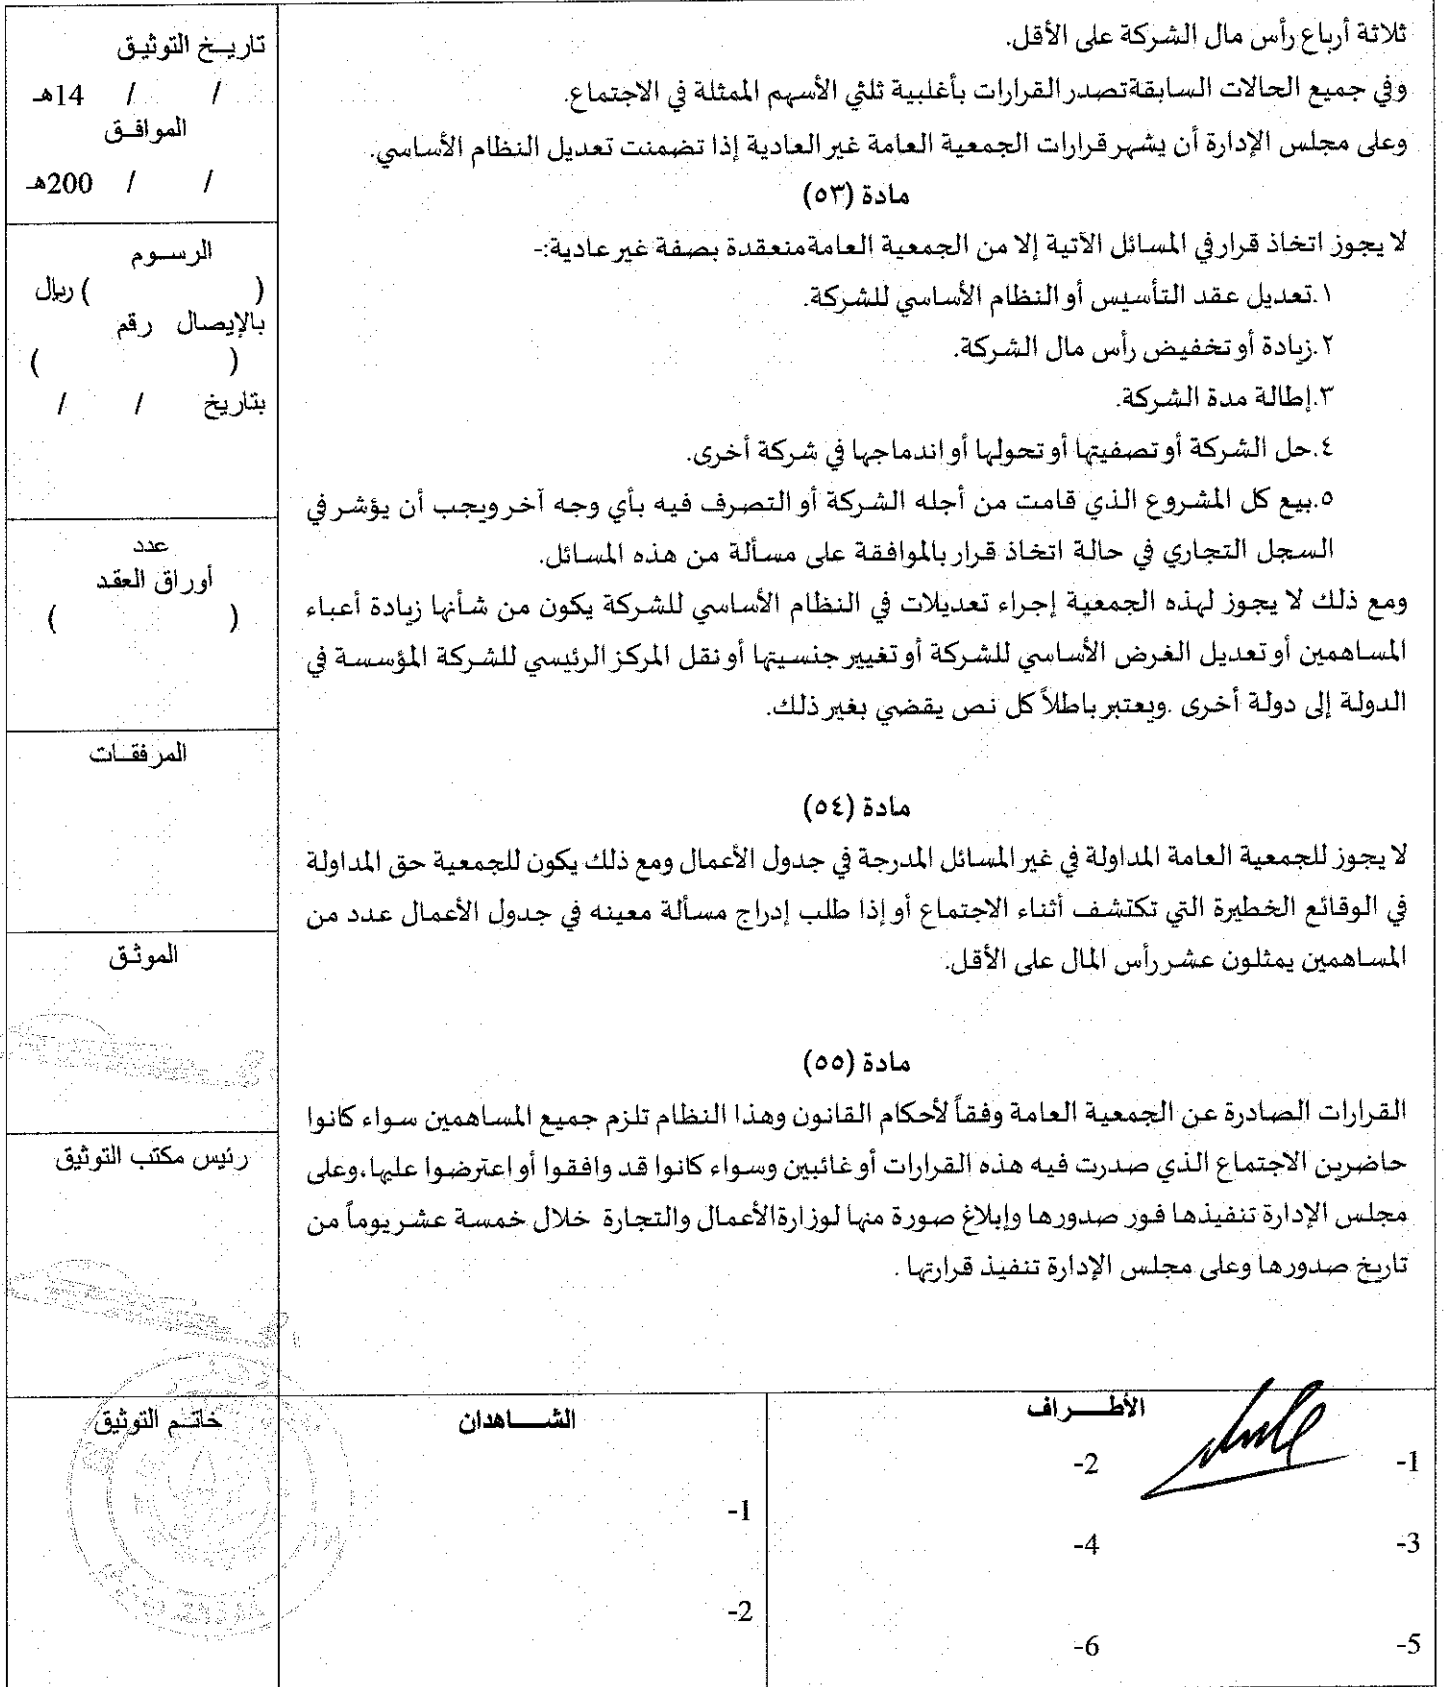 ثلاثة أرباع رأس مال الشركة على الأقل.
وفي جميع الحالات السابقةتصدر القرارات بأغلبية ثلثي الأسهم الممثلة في الاجتماع.
وعلى مجلس الإدارة أن يشهر قرارات الجمعية العامة غير العادية إذا تضمنت تعديل النظام الأساسي.
مادة (٥٣)
لا يجوز اتخاذ قرار في المسائل الآتية إلا من الجمعية العامةمنعقدة بصفة غير عادية:-
١.تعديل عقد التأسيس أو النظام الأساسي للشركة.
٢.زيادة أو تخفيض رأس مال الشركة.
٣.إطالة مدة الشركة.
٤.حل الشركة أو تصفيتها أو تحولها أو اندماجها في شركة أخرى.
٥.بيع كل المشروع الذي قامت من أجله الشركة أو التصرف فيه بأي وجه آخر ويجب أن يؤشر في
السجل التجاري في حالة اتخاذ قرار بالموافقة على مسألة من هذه المسائل.
ومع ذلك لا يجوز لهذه الجمعية إجراء تعديلات في النظام الأساسي للشركة يكون من شأنها زيادة أعباء
المساهمين أو تعديل الغرض الأساسي للشركة أو تغيير جنسيتها أو نقل المركز الرئيسي للشركة المؤسسة في
الدولة إلى دولة أخرى .ويعتبر باطلاً كل نص يقضي بغير ذلك.
مادة (٥٤)
لا يجوز للجمعية العامة المداولة في غير المسائل المدرجة في جدول الأعمال ومع ذلك يكون للجمعية حق المداولة
في الوقائع الخطيرة التي تكتشف أثناء الاجتماع أو إذا طلب إدراج مسألة معينه في جدول الأعمال عدد من
المساهمين يمثلون عشر رأس المال على الأقل.
مادة (٥٥)
القرارات الصادرة عن الجمعية العامة وفقاً لأحكام القانون وهذا النظام تلزم جميع المساهمين سواء كانوا
حاضرين الاجتماع الذي صدرت فيه هذه القرارات أو غائبين وسواء كانوا قد وافقوا أو اعترضوا عليها،وعلى
مجلس الإدارة تنفيذها فور صدورها وإبلاغ صورة منها لوزارةالأعمال والتجارة خلال خمسة عشر يوماً من
تاريخ صدورها وعلى مجلس الإدارة تنفيذ قرارتها .
تاريخ التوثيق
/ / 14هـ
الموافق
/ / 200هـ
الرسوم
( ) ريال
بالإيصال رقم
( )
بتاريخ / /
عدد
أوراق العقد
( )
المرفقات
الموثق
رئيس مكتب التوثيق
خاتم التوثيق
الأطراف
1-
2-
3-
4-
5-
6-
الشاهدان
1-
2-